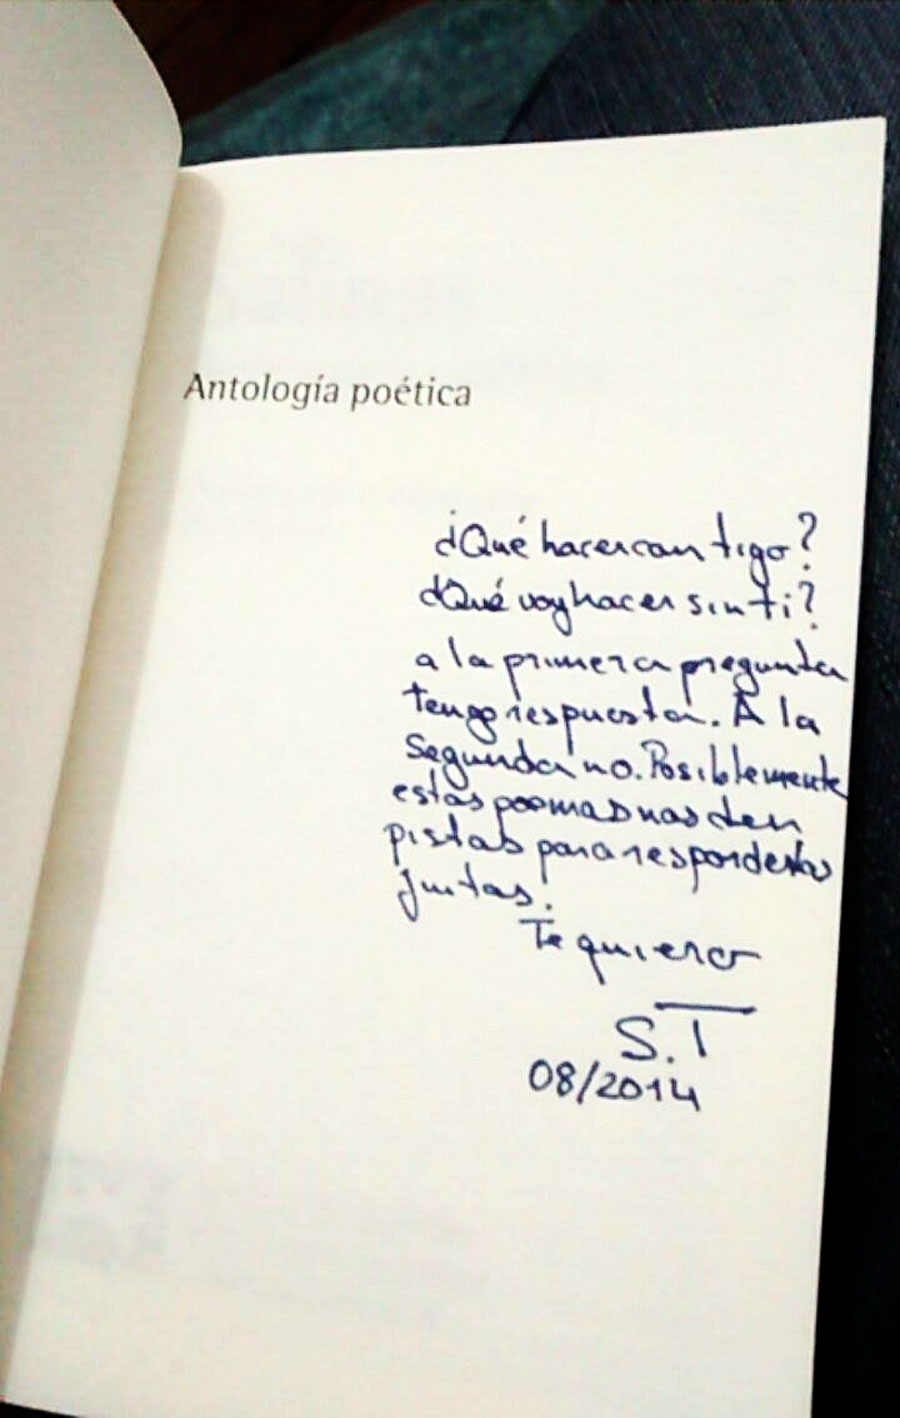 Antología poética
¿Qué hacer contigo?
¿Qué voy hacer sin ti?
a la primera pregunta
tengo respuesta. A la
Segunda no. Posiblemente
estos poemas nos den
pistas para responderlas
juntas.
Te quiero
S.T
08/2014